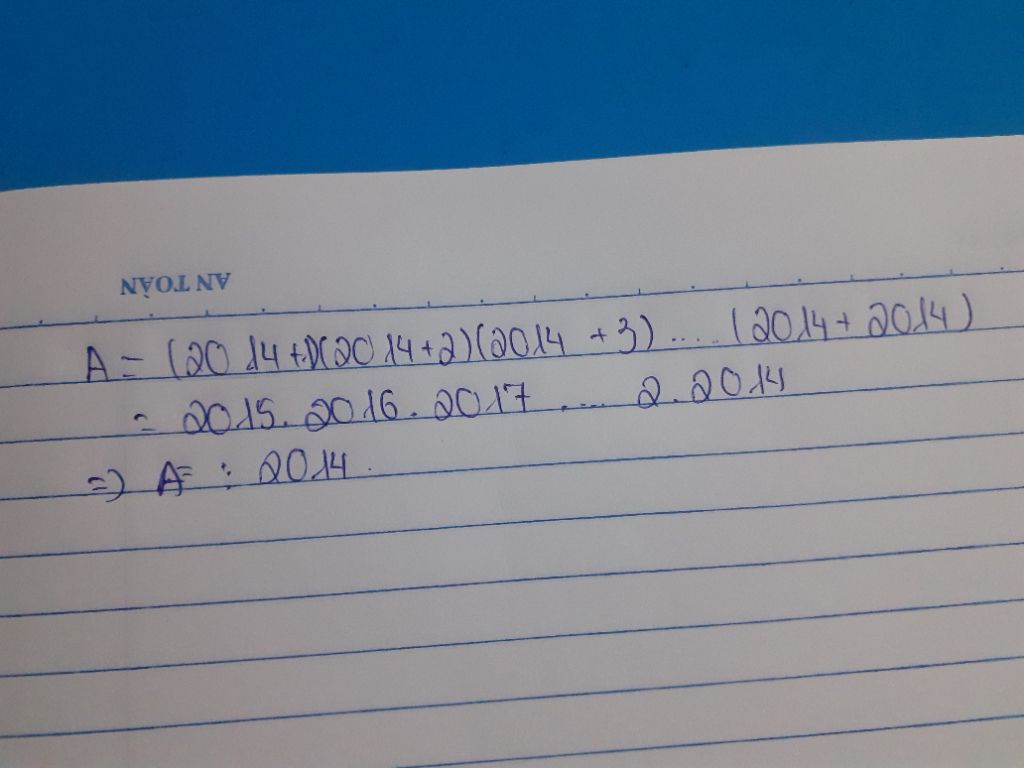 AN TOÀN
A = (2014+1)(2014+2)(2014 +3) ..... (2014 + 2014)
= 2015. 2016. 2017 ..... 2. 2014
=> A= : 2014.